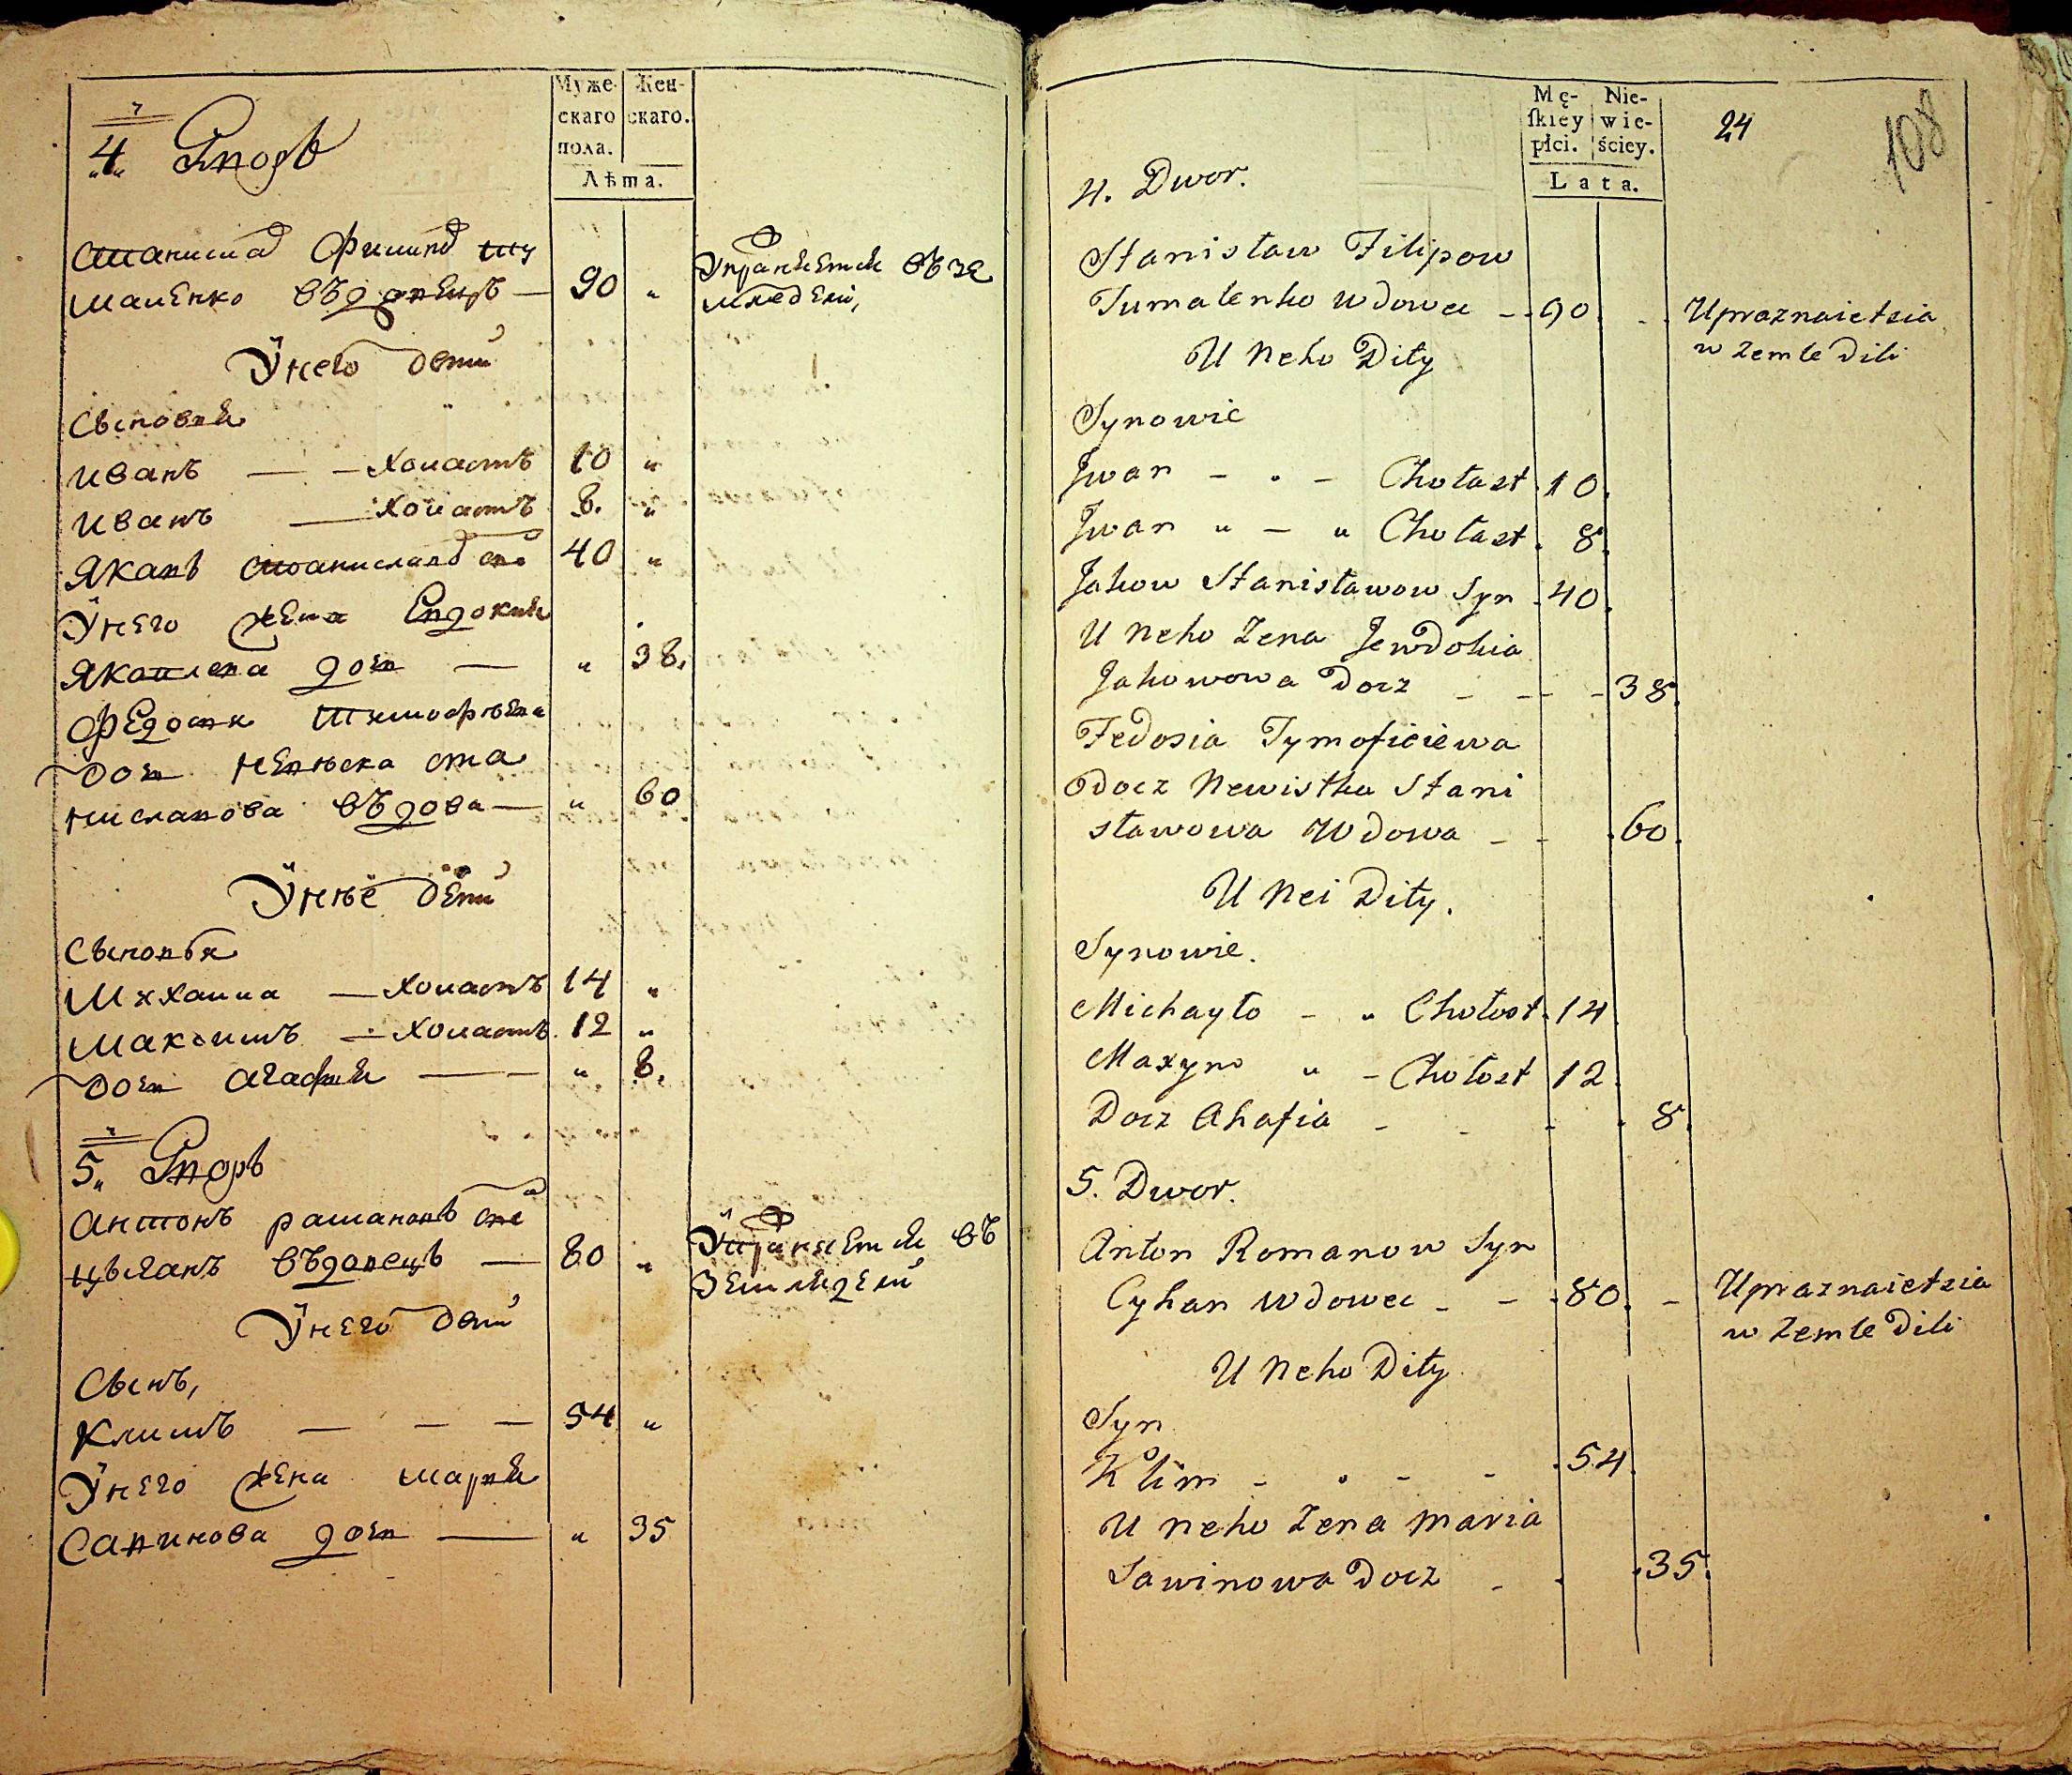 Муже-
скаго
пола.
Жен-
скаго.
Лѣта.
4 Дворъ
Станислав Филипов Шу
маленко въдовецъ — 90 „ Упражняется въ зе
мледелй,
У него дети
Сыновья
Иванъ — — холастъ 10 „
Иванъ — холастъ 8. „
Яковъ Станиславов сы 40 „
У него жена Евдокия
Яковлева доч — „ 38.
Федосия Тимофѣева
доч невѣска Ста
ниславова въдова — „ 60
У нѣе дети
Сыновья
Михаила — холастъ 14 „
Максимъ — холастъ. 12 „
доч Агафия — — „ 8.
5„ Дворъ
Антонъ Раманов сы
Цыганъ въдовецъ — 80 „ Упражняется въ
земледелй
У него дети
Сынъ,
Климъ — — — 54 „
У него жена Мария
Савинова доч — „ 35
Mę-
skiey
płci.
Nie-
wie-
ściey.
Lata.
24
108
4. Dwor.
Stanisław Filipow
Szumalenko Wdowec - . 90. . Uprażnaietsia
w Zemle Dili
U Neho Dity
Synowie
Jwan - . - Chołast . 10.
Jwan „ — „ Chołast . 8.
Jakow Stanisławow Syn . 40.
U Neho Zena Jewdokia
Jakowowa Docz - - - - 38.
Fedosia Tymofieiewa
Docz Newistka Stani
sławowa Wdowa - - . 60.
U Nei Dity.
Synowie.
Michayło - „ Chołost . 14
Maxym „ - Chołost 12.
Docz Ahafia - - . . 8.
5. Dwor.
Anton Romanow Syn
Cyhan Wdowec - - . 80. - Uprażnaietsia
w Zemle Dili
U Neho Dity
Syn
Klim - . - - . 54.
U Neho Zena Maria
Sawinowa Docz - . . 35.